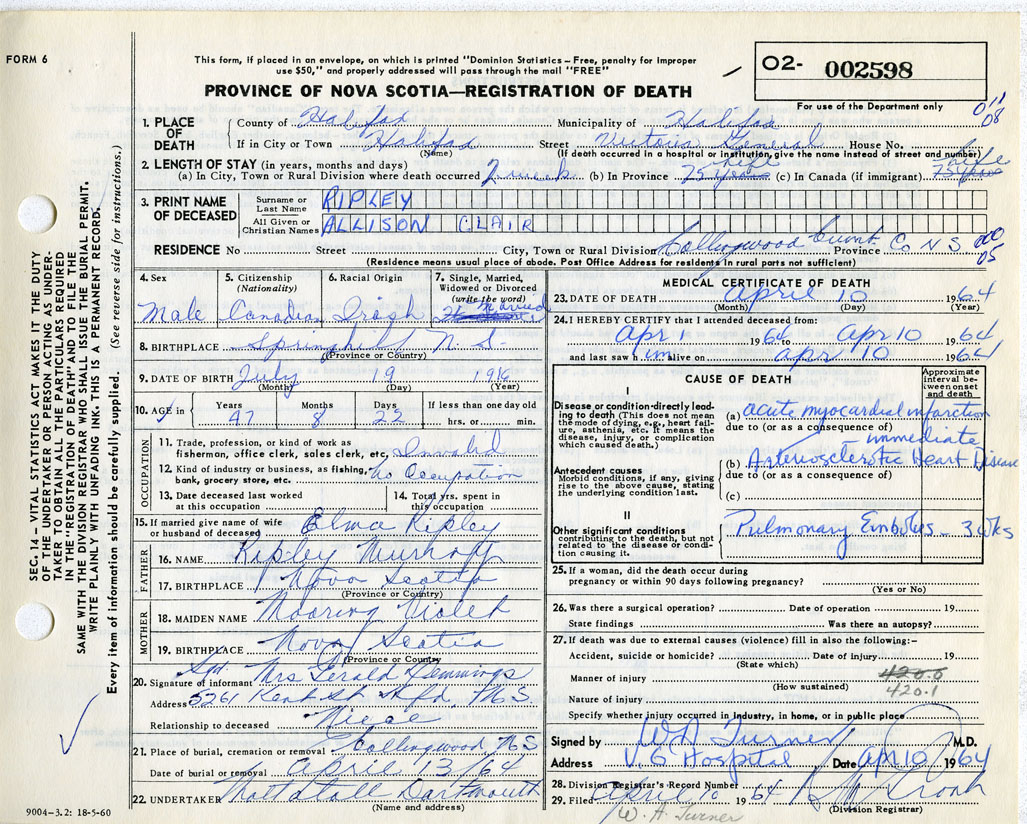 FORM 6
This form, if placed in an envelope, on which is printed "Dominion Statistics – Free, penalty for improper
use $50," and properly addressed will pass through the mail "FREE"
PROVINCE OF NOVA SCOTIA—REGISTRATION OF DEATH
02- 002598
For use of the Department only
011
08
1. PLACE OF DEATH
County of Halifax Municipality of Halifax
If in City or Town Halifax Street Victoria General House No.
(Name) (If death occurred in a hospital or institution, give the name instead of street and number)
2. LENGTH OF STAY (in years, months and days)
(a) In City, Town or Rural Division where death occurred 2 week (b) In Province 75 years life (c) In Canada (if immigrant) 75 years life
3. PRINT NAME OF DECEASED
Surname or Last Name RIPLEY
All Given or Christian Names ALLISON CLAIR
RESIDENCE No Street City, Town or Rural Division Collingwood Cumb. Co Province N S 000
05
(Residence means usual place of abode. Post Office Address for residents in rural parts not sufficient)
4. Sex 5. Citizenship (Nationality) 6. Racial Origin 7. Single, Married, Widowed or Divorced (write the word)
Male Canadian Irish Married
8. BIRTHPLACE Springhill N S
(Province or Country)
9. DATE OF BIRTH July 19 1916
(Month) (Day) (Year)
10. AGE in Years Months Days If less than one day old
47 8 22 hrs. or min.
OCCUPATION
11. Trade, profession, or kind of work as fisherman, office clerk, sales clerk, etc. Invalid
12. Kind of industry or business, as fishing, bank, grocery store, etc. No Occupation
13. Date deceased last worked at this occupation
14. Total yrs. spent in this occupation
15. If married give name of wife or husband of deceased Elma Ripley
FATHER
16. NAME Ripley
17. BIRTHPLACE Nova Scotia
(Province or Country)
MOTHER
18. MAIDEN NAME Mooring Violet
19. BIRTHPLACE Nova Scotia
(Province or Country)
20. Signature of informant Sgd Mrs Gerald Hemmings
Address 5261 Kent St Hfx, N.S.
Relationship to deceased Niece
21. Place of burial, cremation or removal Collingwood, N S
Date of burial or removal April 13/64
22. UNDERTAKER Mattatall Dartmouth
(Name and address)
9004-3.2: 18-5-60
MEDICAL CERTIFICATE OF DEATH
23. DATE OF DEATH April 10 1964
(Month) (Day) (Year)
24. I HEREBY CERTIFY that I attended deceased from:
Apr 1 1964 to Apr 10 1964
and last saw him alive on apr 10 1964
CAUSE OF DEATH
Approximate interval between onset and death
I
Disease or condition directly leading to death (This does not mean the mode of dying, e.g., heart failure, asthenia, etc. It means the disease, injury, or complication which caused death.)
(a) acute myocardial infarction
due to (or as a consequence of)
– immediate
Antecedent causes
Morbid conditions, if any, giving rise to the above cause, stating the underlying condition last.
(b) Arteriosclerotic Heart Disease
due to (or as a consequence of)
(c)
II
Other significant conditions contributing to the death, but not related to the disease or condition causing it.
Pulmonary Embolus – 3 wks
25. If a woman, did the death occur during pregnancy or within 90 days following pregnancy?
(Yes or No)
26. Was there a surgical operation? Date of operation 19
State findings Was there an autopsy?
27. If death was due to external causes (violence) fill in also the following:-
Accident, suicide or homicide? Date of injury 19
(State which)
Manner of injury 420.0
(How sustained) 420.1
Nature of injury
Specify whether injury occurred in industry, in home, or in public place
Signed by W A Turner M.D.
Address V. G Hospital Date Apr 10 1964
28. Division Registrar's Record Number
29. Filed April 10 1964
(Division Registrar)
W. A. Turner
SEC. 14 – VITAL STATISTICS ACT MAKES IT THE DUTY
OF THE UNDERTAKER OR PERSON ACTING AS UNDER-
TAKER TO OBTAIN ALL THE PARTICULARS REQUIRED
IN THE "REGISTRATION OF DEATH" AND TO FILE THE
SAME WITH THE DIVISION REGISTRAR WHO SHALL ISSUE THE BURIAL PERMIT.
WRITE PLAINLY WITH UNFADING INK. THIS IS A PERMANENT RECORD.
Every item of information should be carefully supplied. (See reverse side for instructions.)